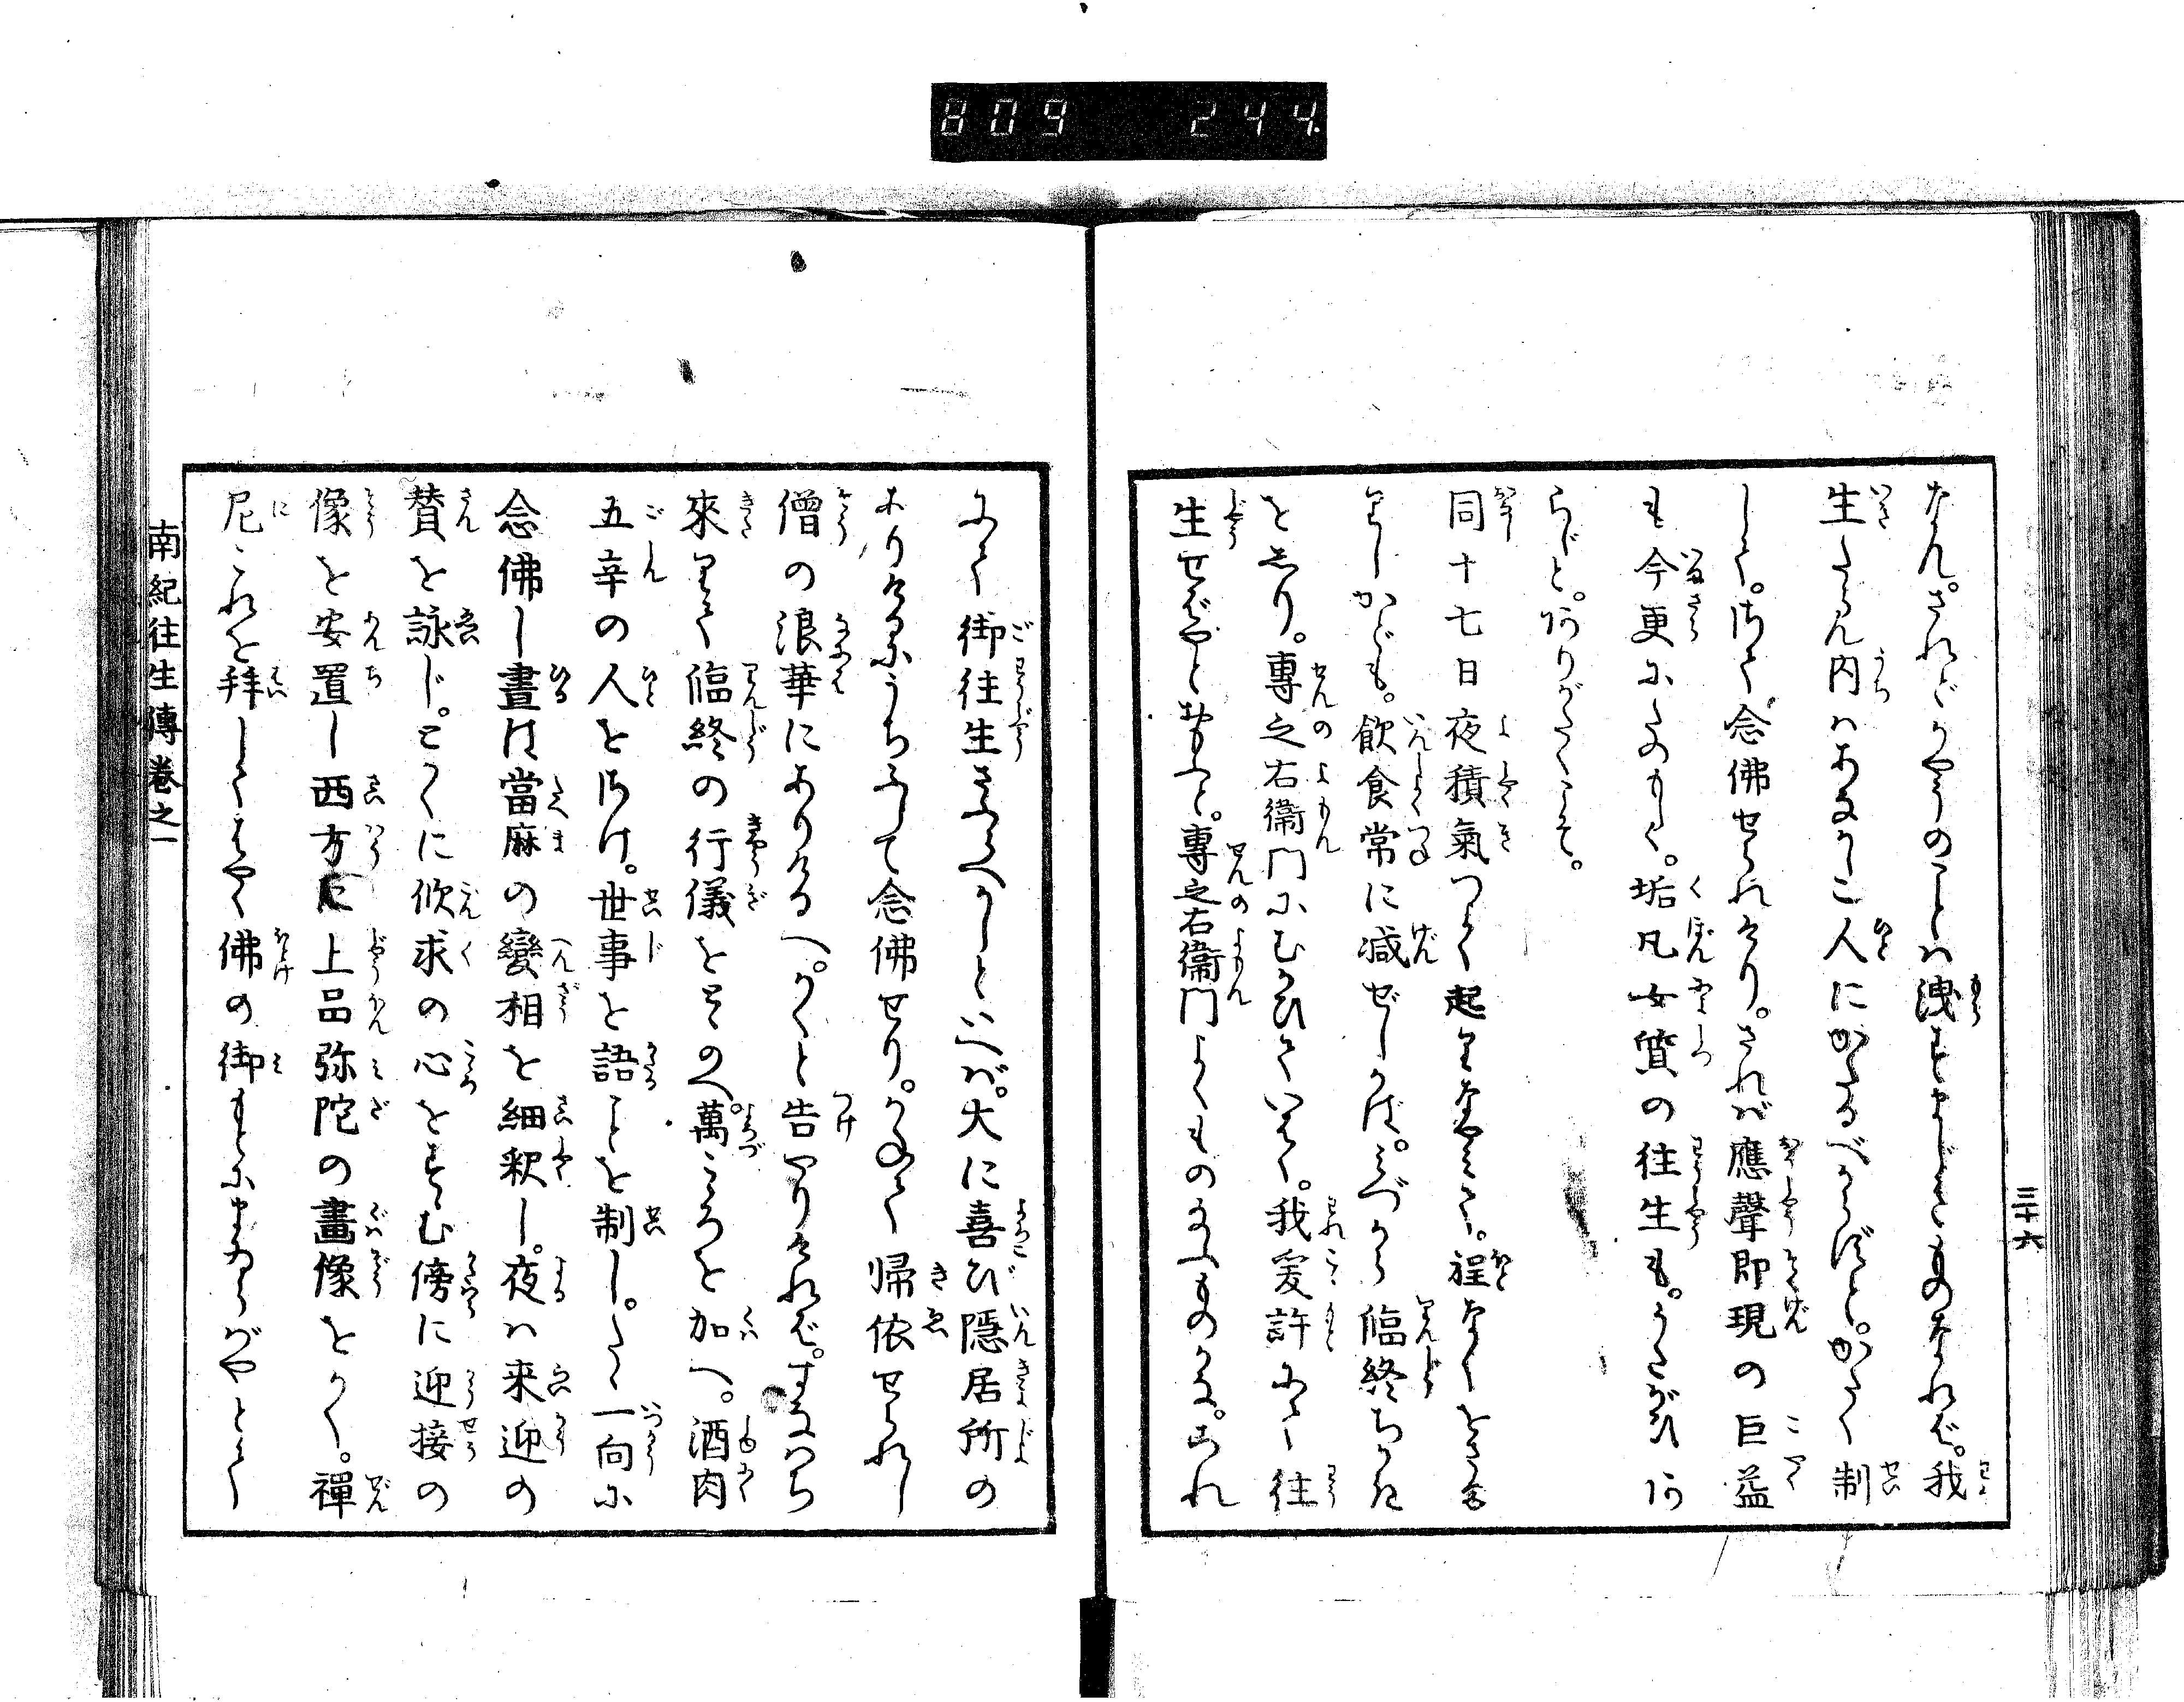 809 244
三十六
なん。されどかやうのことハ洩すまじきものなれば。我
生たらん内ハあなかしこ人にかたるべからずと。かたく制
して。いよく念佛せられけり。されバ應聲即現の巨益
も今更にたのもしく。垢凡女質の往生も。うたがひあ
らじと。ありがたくこそ。
同十七日夜積氣つよく起りなやミて。程なくをさま
りしかども。飲食常に減ぜしかば。ミづから臨終ちかき
をしり。專之右衞門にむかひていはく。我爰許にて往
生せばやとおもふと。專之右衞門よくものたまふものかな。これ
にて御往生さふらへかしといへバ。大に喜び隱居所の
ありけるにうちふして念佛せり。かねて帰依せられし
僧の浪華にありけるへ。かくと告やりけれバ。すなハち
來りて臨終の行儀をとゝのへ。萬こゝろを加へ。酒肉
五辛の人をさけ。世事を語ことを制し。たゞ一向に
念佛し晝は當麻の變相を細釈し。夜ハ来迎の
賛を詠じ。とくに欣求の心をすゝむ傍に迎接の
像を安置し西方に上品弥陀の畫像をかく。禪
尼これを拜してはやく佛の御もとにまゐらばやとて
南紀往生傳巻之一